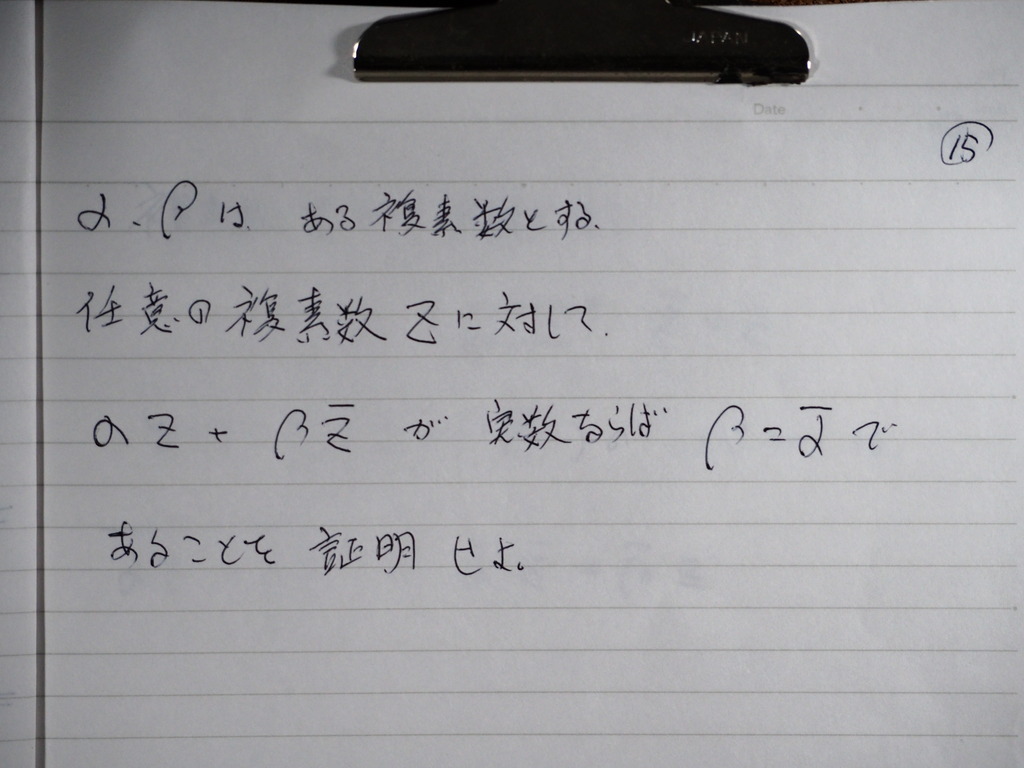 JAPAN
Date
⑮
α、βは ある複素数とする。
任意の複素数 Zに対して、
αZ + βZ̅ が 実数ならば β=α̅ で
あることを 証明せよ。